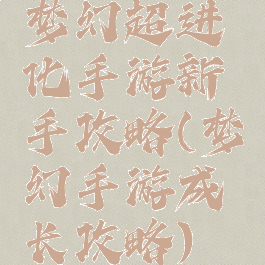 梦幻超进
化手游新
手攻略(梦
幻手游成
长攻略)